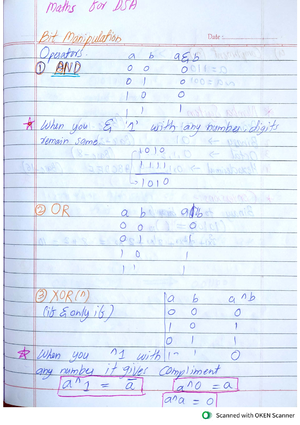 Maths for DSA
Bit Manipulation
Date:
Operators
① AND
a b a&b
0 0 0
0 1 0
1 0 0
1 1 1
* When you & '1' with any number, digits
remain same.
1010
1111
1010
② OR
a b
0 0 0
0 1
1 0 1
1 1 1
③ XOR (^)
(if & only if)
a b a^b
0 0 0
1 0 1
0 1 1
1 1 0
* When you ^1 with
any number it gives compliment
a^1 = a̅
a^0 = a
a^a = 0
Scanned with OKEN Scanner